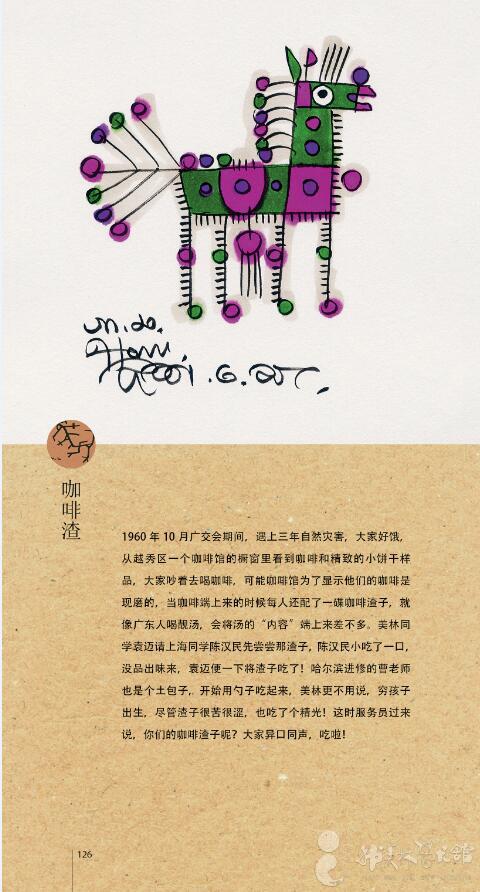 咖啡渣
1960 年 10 月广交会期间，遇上三年自然灾害，大家好饿，
从越秀区一个咖啡馆的橱窗里看到咖啡和精致的小饼干样
品，大家吵着去喝咖啡，可能咖啡馆为了显示他们的咖啡是
现磨的，当咖啡端上来的时候每人还配了一碟咖啡渣子，就
像广东人喝靓汤，会将汤的“内容”端上来差不多。美林同
学袁迈请上海同学陈汉民先尝尝那渣子，陈汉民小吃了一口，
没品出味来，袁迈便一下将渣子吃了！哈尔滨进修的曹老师
也是个土包子，开始用勺子吃起来，美林更不用说，穷孩子
出生，尽管渣子很苦很涩，也吃了个精光！这时服务员过来
说，你们的咖啡渣子呢？大家异口同声，吃啦！
126